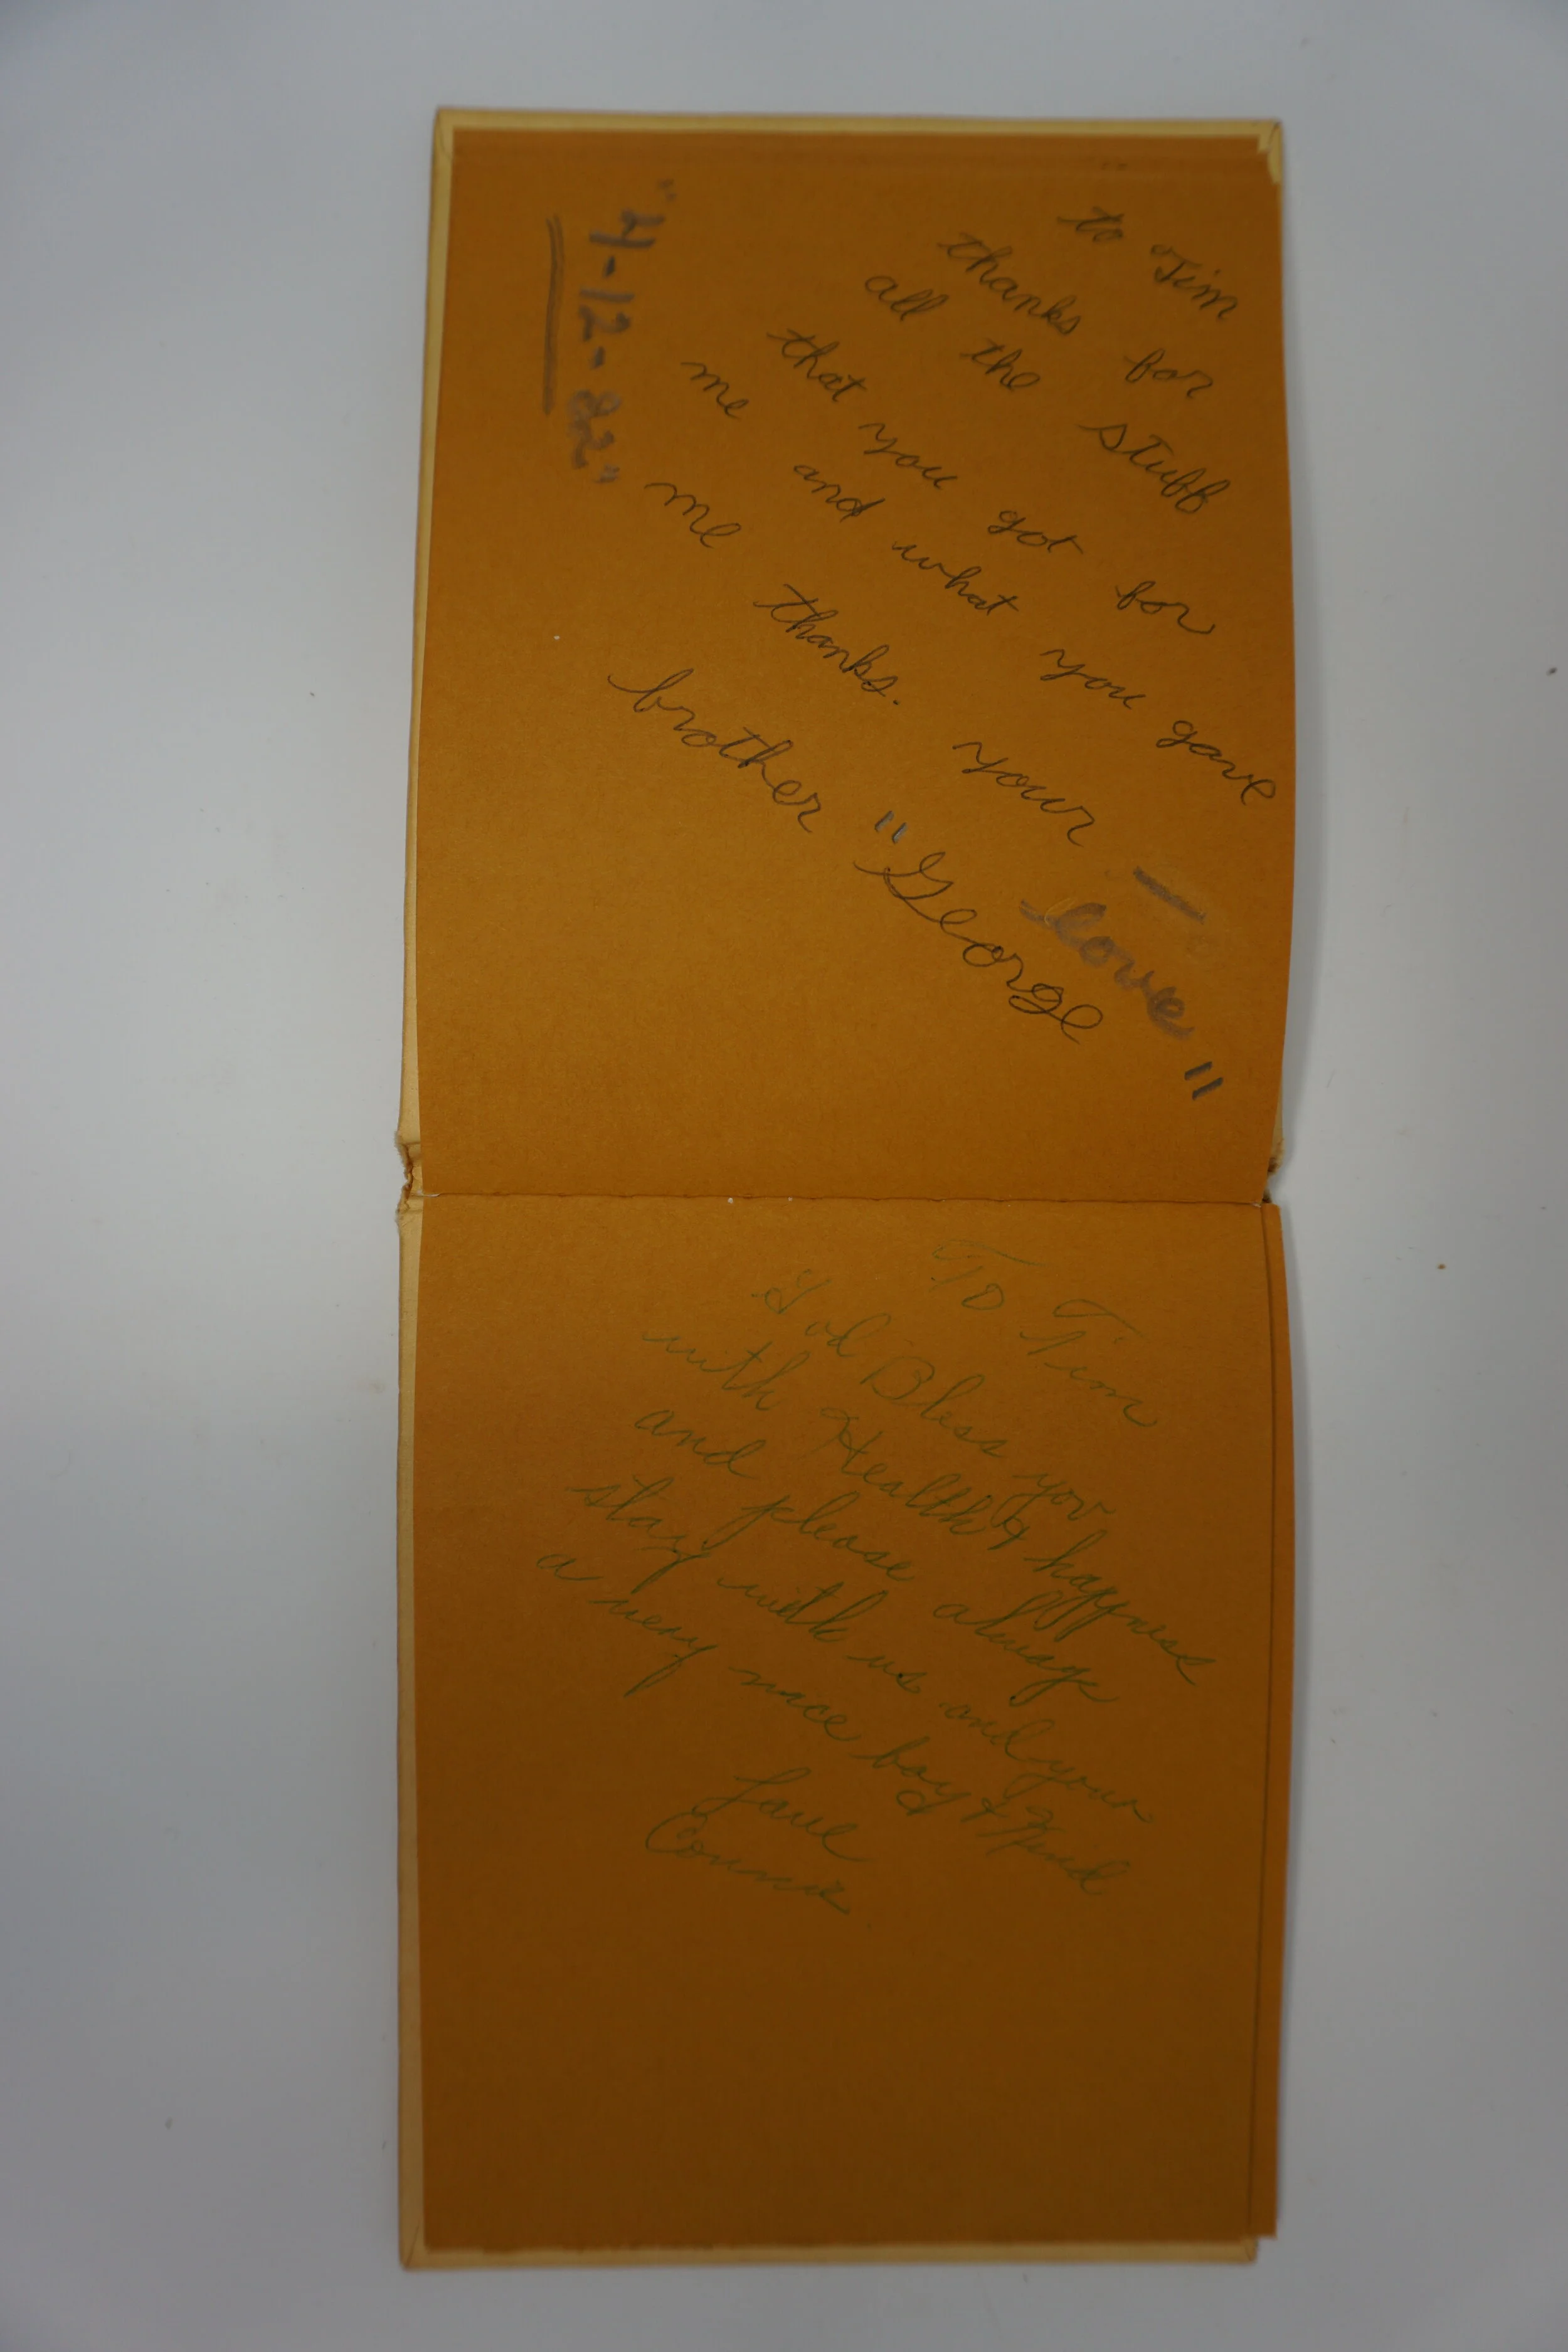 to "Tim
thanks for
all the stuff
that you got for
me and what you gave
me thanks. your
brother "George
love "
"4-12-82"
To Tim
God Bless you
with Health & happness
and please always
stay with us and your
a very nice boy & Kind
Love
Connie